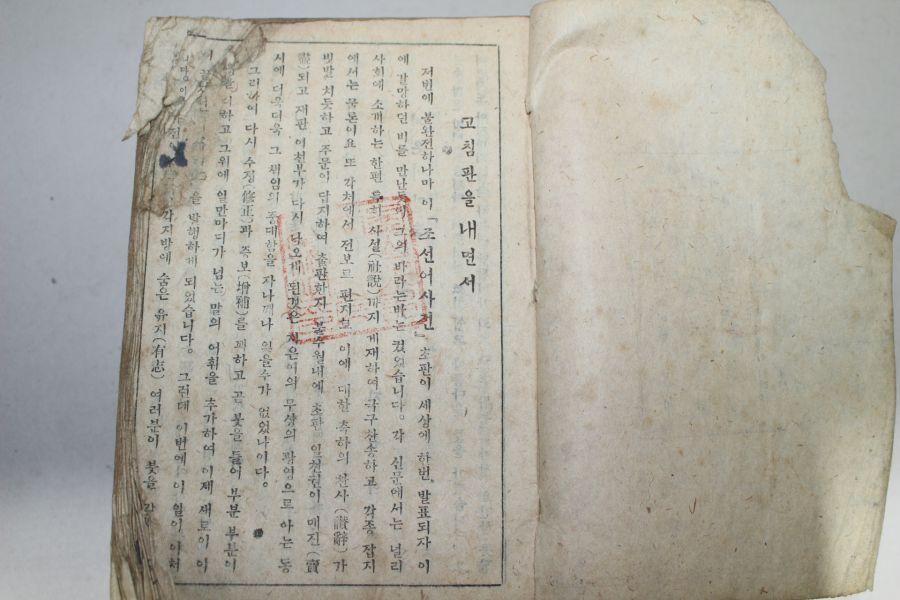 고침판을 내면서
저번에 불완전하나마 이 「조선어사전」 초판이 세상에 한번 발표되자 이
에 갈망하던 비를 만난듯이 그의 바라는바는 컸었습니다。 각 신문에서는 널리
사회에 소개하는 한편 특히 사설(社說)까지 게재하여 극구찬송하고 각종 잡지
에서는 물론이요 또 각처에서 전보로 편지로 이에 대한 축하의 찬사(讚辭)가
빗발 치듯하고 주문이 답지하여 출판한지 불수월내에 초판 일천권이 매진(賣
盡)되고 재판 이천부가 다시 나오게 된것은 지은이의 무상의 광영으로 아는 동
시에 더욱더욱 그 책임의 중대함을 자나깨나 잊을수가 없었나이다。
그리하여 다시 수정(修正)과 증보(增補)를 꾀하고 곧 붓을 들어 부분 부분이
하고 그위에 일만마디가 넘는 말의 어휘을 추가하여 이제 새로이 이
을 발행하게 되었습니다。 그런데 이번에 이 일이 이처
각지방에 숨은 유지(有志) 여러분이 붓을